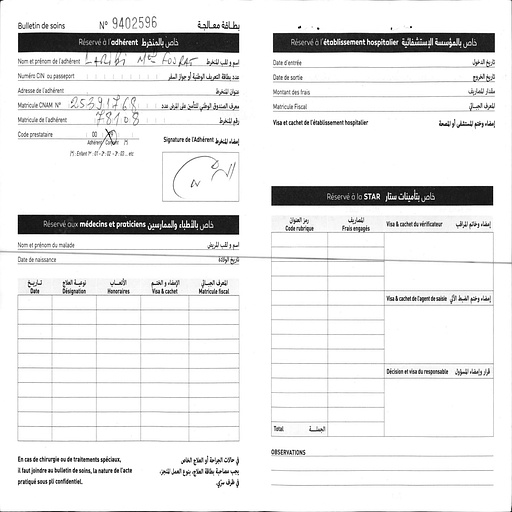 Bulletin de soins N° 9402596 بطاقة معالجة
Réservé à l'adhérent خاص بالمنخرط
Nom et prénom de l'adhérent LARIBI Med FOURAT اسم و لقب المنخرط
Numéro CIN ou passeport عدد بطاقة التعريف الوطنية أو جواز السفر
Adresse de l'adhérent عنوان المنخرط
Matricule CNAM N° 25391768 معرف الصندوق الوطني للتأمين على المرض عدد
Matricule de l'adhérent 78108 رقم المنخرط
Code prestataire 00
Adhérent Conjoint (*)
(*) : Enfant 1er : 01 - 2e : 02 - 3e : 03 ... etc
Signature de l'Adhérent إمضاء المنخرط
Réservé aux médecins et praticiens خاص بالأطباء والممارسين
Nom et prénom du malade اسم و لقب المريض
Date de naissance تاريخ الولادة
تاريخ نوعية العلاج الأتعاب الإمضاء و الختم المعرف الجبائي
Date Désignation Honoraires Visa & cachet Matricule fiscal
En cas de chirurgie ou de traitements spéciaux,
il faut joindre au bulletin de soins, la nature de l'acte
pratiqué sous pli confidentiel.
في حالات الجراحة أو العلاج الخاص
يجب مصاحبة بطاقة العلاج، بنوع العمل المنجز،
في ظرف سري.
Réservé à l'établissement hospitalier خاص بالمؤسسة الإستشفائية
Date d'entrée تاريخ الدخول
Date de sortie تاريخ الخروج
Montant des frais مقدار المصاريف
Matricule Fiscal المعرف الجبائي
Visa et cachet de l'établissement hospitalier إمضاء وختم المستشفى أو المصحة
Réservé à la STAR خاص بتأمينات ستار
رمز العنوان المصاريف
Code rubrique Frais engagés
Visa & cachet du vérificateur إمضاء وخاتم المراقب
Visa & cachet de l'agent de saisie إمضاء وختم الضبط الآلي
Décision et visa du responsable قرار وإمضاء المسؤول
Total الجملة
OBSERVATIONS